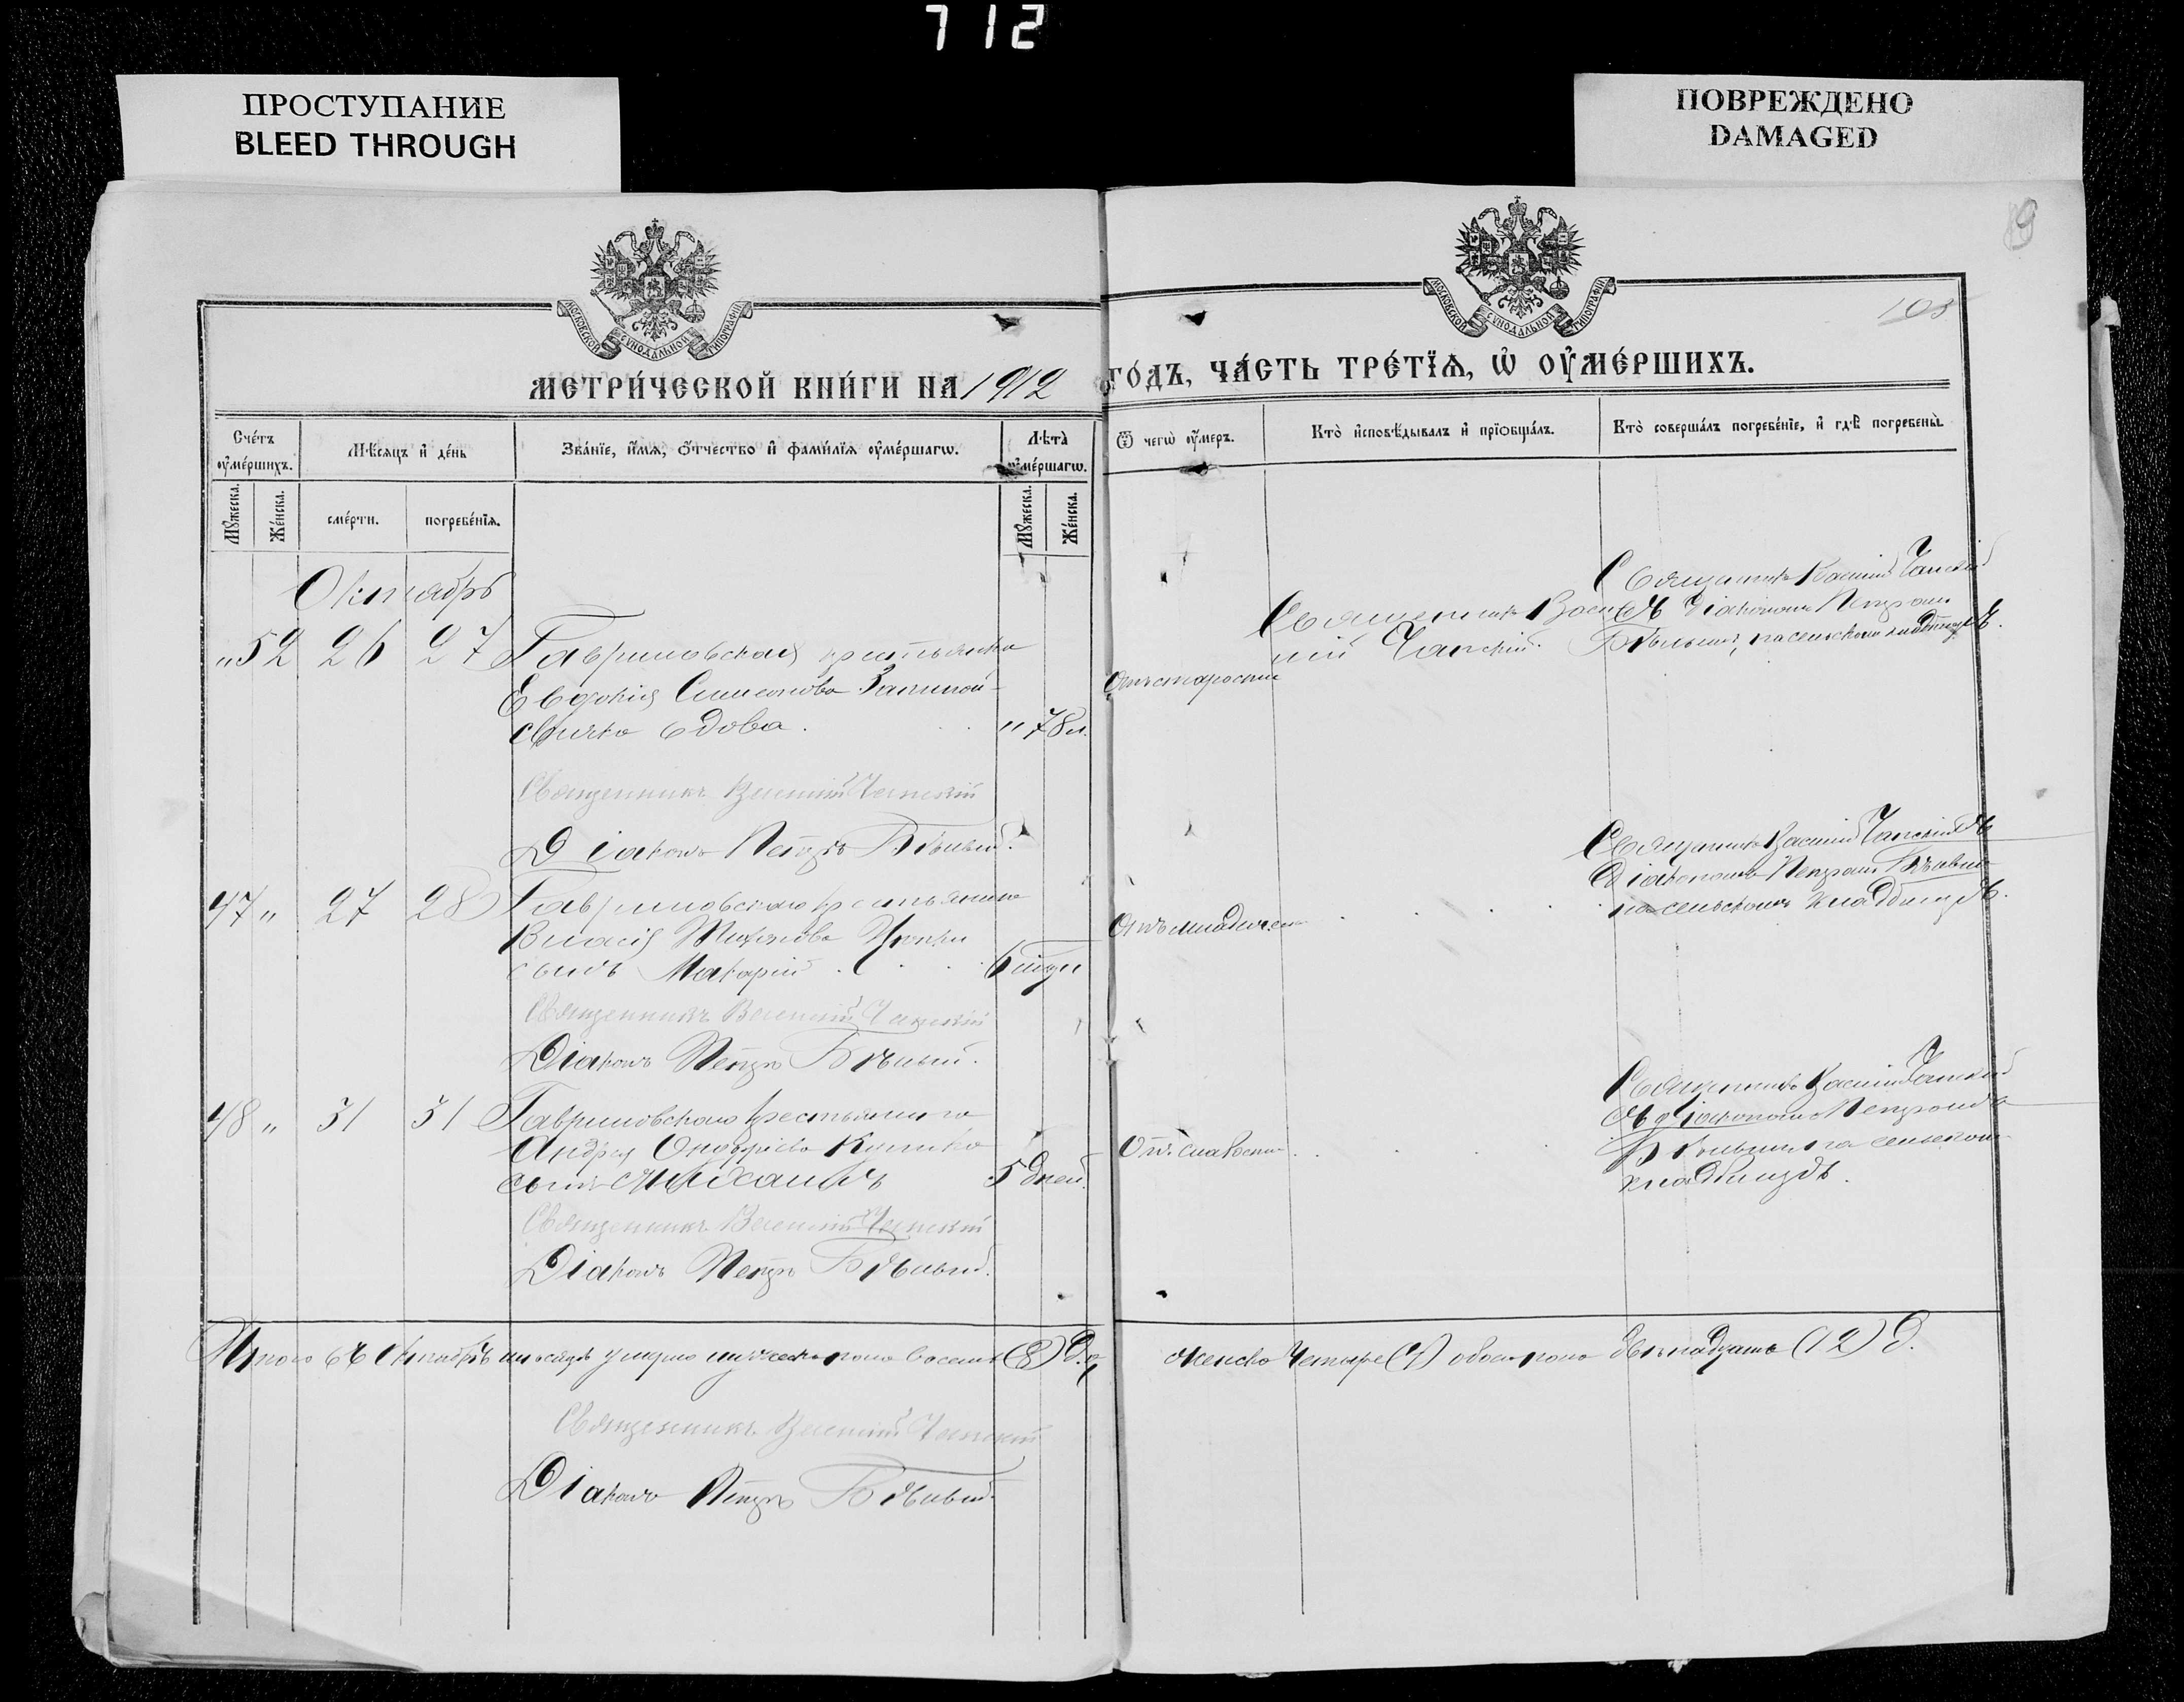 712
ПРОСТУПАНИЕ
BLEED THROUGH
ПОВРЕЖДЕНО
DAMAGED
9
103
МОСКОВСКОЙ СѴНОДАЛЬНОЙ ТИПОГРАФІИ
МОСКОВСКОЙ СѴНОДАЛЬНОЙ ТИПОГРАФІИ
МЕТРИ́ЧЕСКОЙ КНИ́ГИ НА 1912 ГО́ДЪ, ЧА́СТЬ ТРЕ́ТЇѦ, Ѡ҆ ОУ҆МЕ́РШИХЪ.
Сче́тъ оу҆ме́ршихъ.
Мѣ́сяцъ и҆ де́нь
Зва́нїе, и҆́мѧ, ѻ҆́тчество и҆ фами́лїѧ оу҆ме́ршагѡ.
Лѣ́та оу҆ме́ршагѡ.
Ѿ чегѡ̀ оу҆́меръ.
Кто̀ и҆сповѣ́дывалъ и҆ прїѡбща́лъ.
Кто̀ соверша́лъ погребе́нїе, и҆ гдѣ̀ погребены̀.
Мꙋ́жеска.
Же́нска.
сме́рти.
погребе́нїѧ.
Мꙋ́жеска.
Же́нска.
Октябрь
„ 52 26 27 Гавриловская крестьянка
Евдокія Симеонова
вдова. „ 78 л.
Отъ старости
Священникъ Васи
лій Чапскій.
Священникъ Василій Чапскій
съ діакономъ Петромъ
Бѣлымъ, на сельскомъ кладбищѣ.
Священникъ Василій Чапскій
Діаконъ Петръ Бѣлый.
47 „ 27 28 Гавриловскаго крестьянина
Власія
сынъ Макарій
Священникъ Василій Чапскій съ
Діакономъ Петромъ Бѣлымъ
на сельскомъ кладбищѣ.
Священникъ Василій Чапскій
Діаконъ Петръ Бѣлый.
48 „ 31 31 Гавриловскаго крестьянина
Андрея Онуфріева
сынъ Михаилъ 5 дней.
Отъ слабости
Священникъ Василій Чапскій
съ діакономъ Петромъ
Бѣлымъ на сельскомъ
кладбищѣ.
Священникъ Василій Чапскій
Діаконъ Петръ Бѣлый.
Итого въ Октябрѣ мѣсяцѣ умерло мужеска пола восемь (8) д. женска четыре (4) обоего пола двѣнадцать (12) д.
Священникъ Василій Чапскій
Діаконъ Петръ Бѣлый.